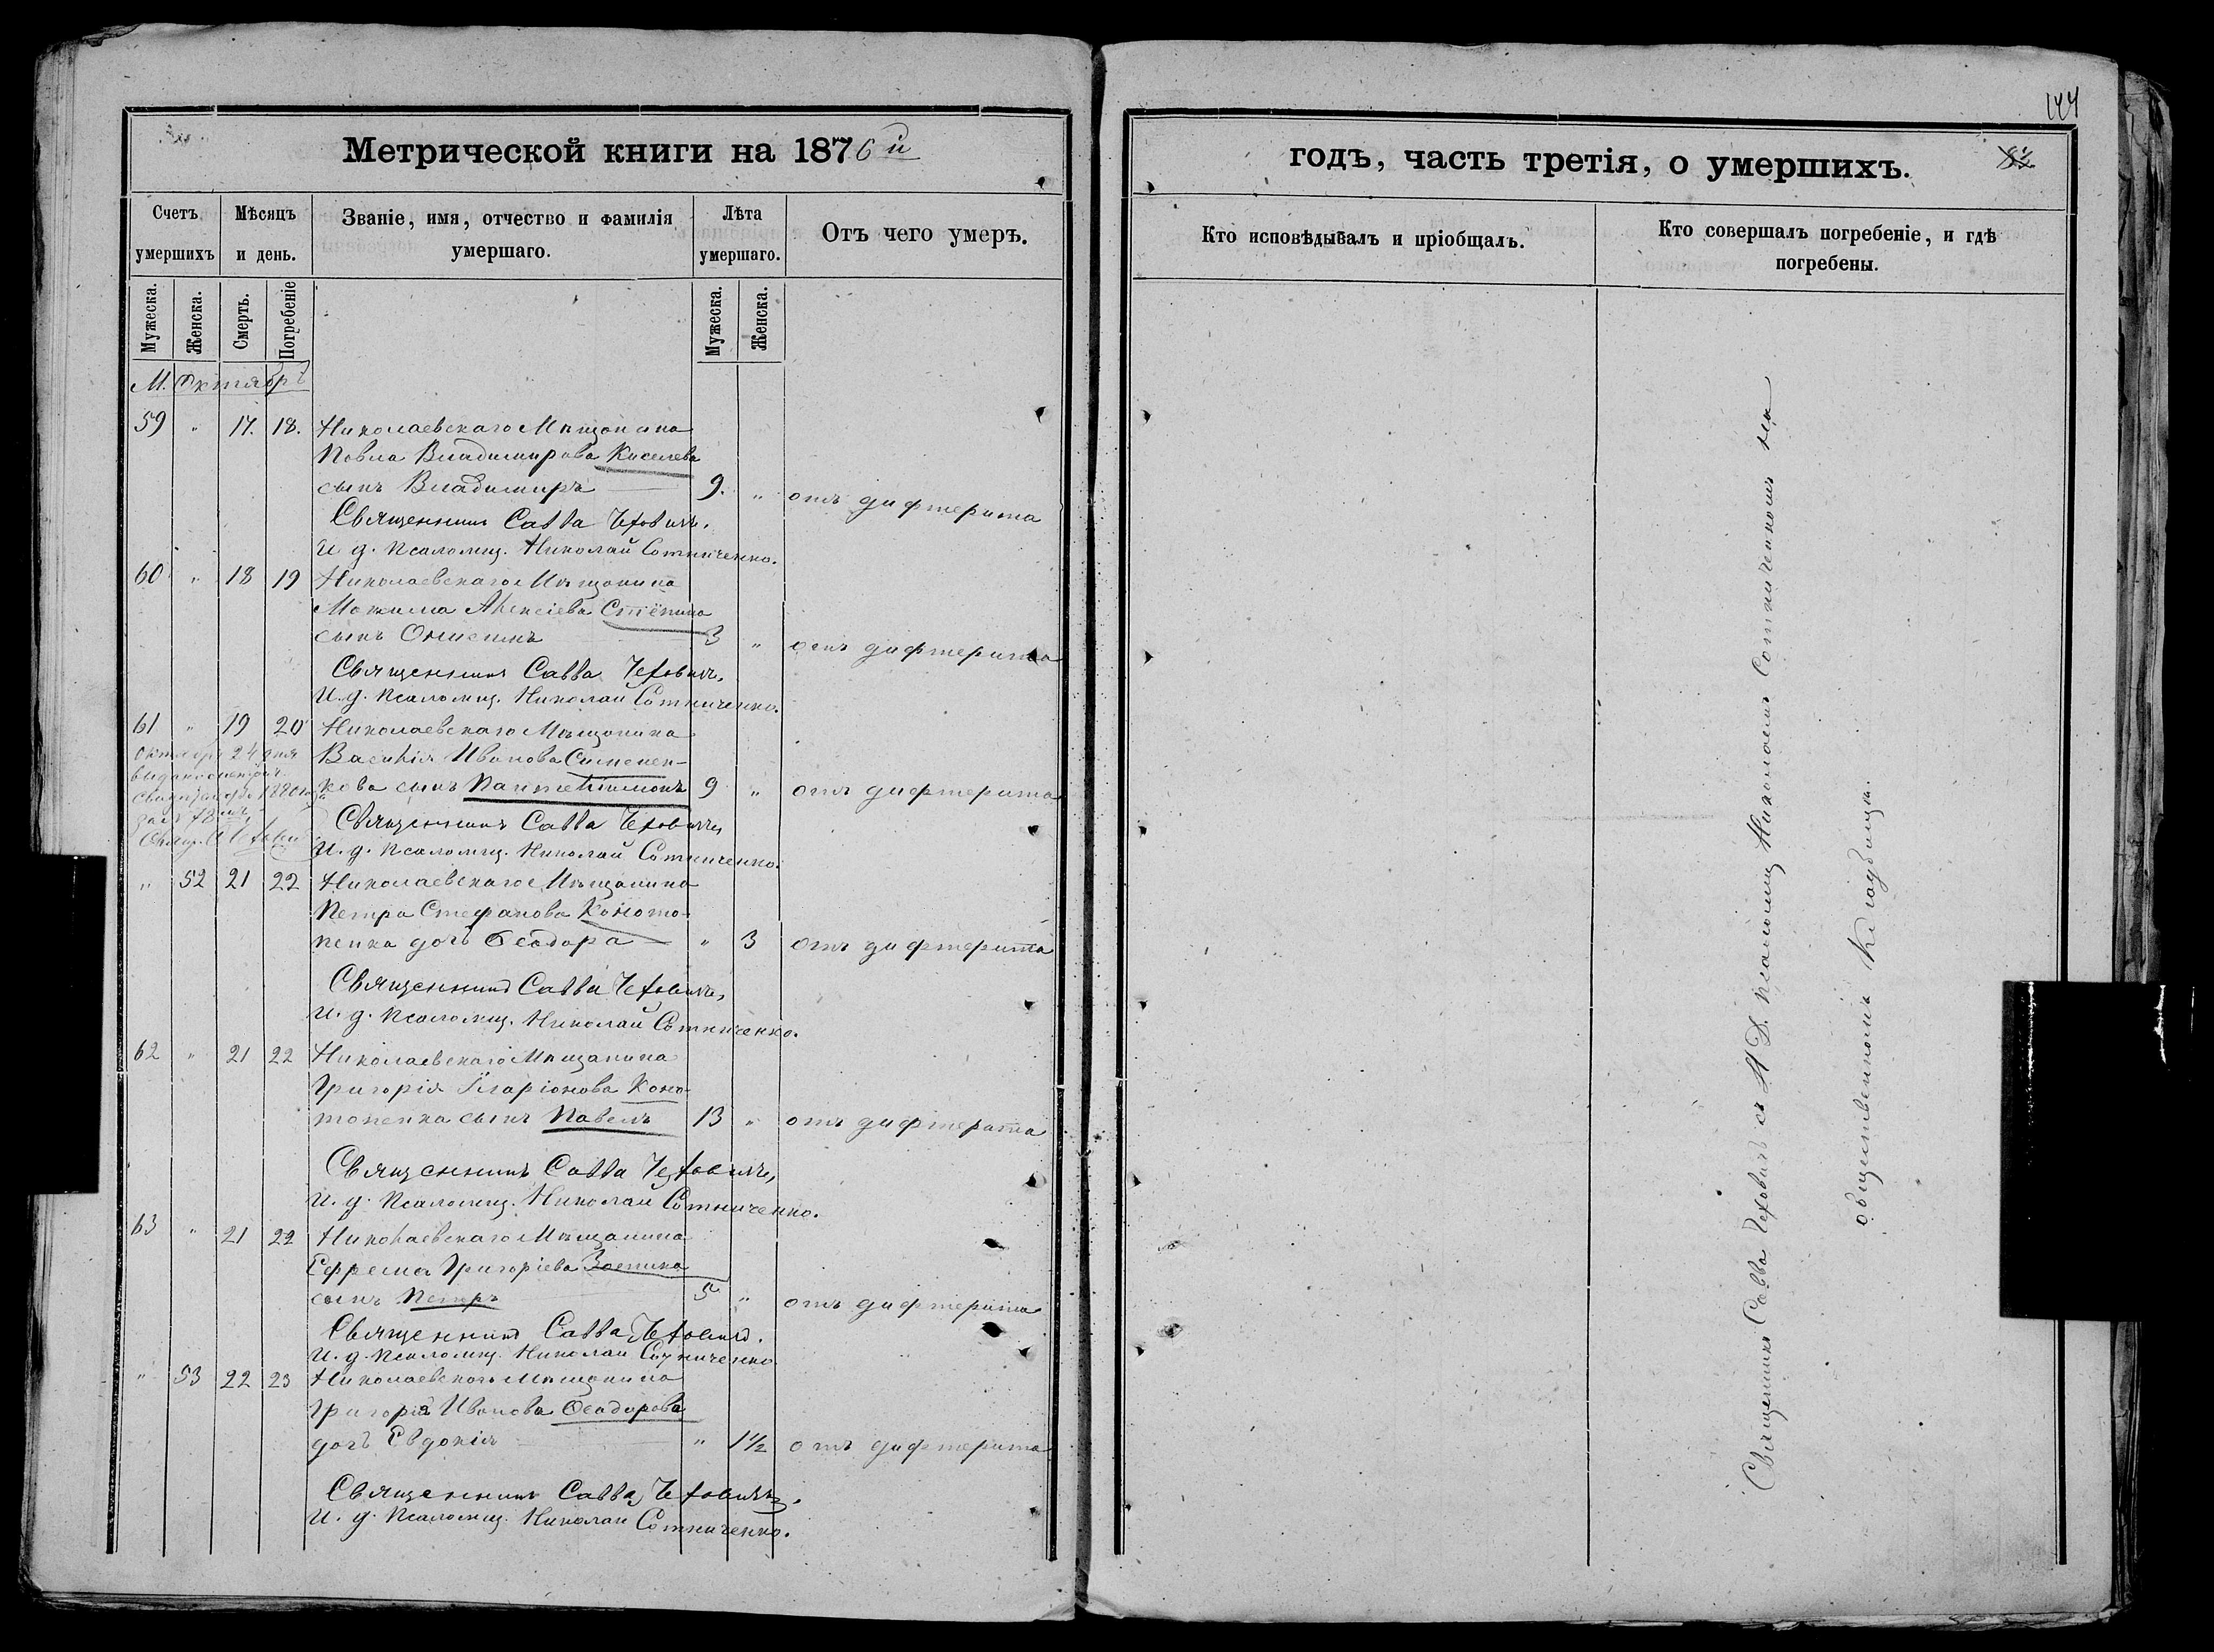 Метрической книги на 1876й
Счетъ умершихъ
Мѣсяцъ и день.
Званіе, имя, отчество и фамилія умершаго.
Лѣта умершаго.
Отъ чего умеръ.
Мужеска.
Женска.
Смерть.
Погребеніе
Мужеска.
Женска.
М. Октябръ
59 " 17. 18. Николаевскаго Мѣщанина
Павла Владимирова Киселева
сынъ Владимиръ — 9. " отъ дифтерита
Священникъ Савва Чеховичъ.
И д. псаломщ. Николай Сотниченко.
60 " 18 19 Николаевскаго Мѣщанина
Максима Алексіева Стёпина
сынъ 3 " отъ дифтерита
Священникъ Савва Чеховичъ,
И. д. псаломщ. Николай Сотниченко.
61 " 19 20 Николаевскаго Мѣщанина
Василія Иванова Симонен-
кова сынъ Пантелімонъ 9 " отъ дифтерита
Октября 24 дня
1880 года
Священникъ Савва Чеховичъ,
И. д. псаломщ. Николай Сотниченко.
" 52 21 22 Николаевскаго Мѣщанина
Петра Стефанова Коното-
пенка дочь Ѳеодора — " 3 отъ дифтерита
Священникъ Савва Чеховичъ,
И. д. псаломщ. Николай Сотниченко.
62 " 21 22 Николаевскаго Мѣщанина
Григорія Іларіонова Коно-
топенка сынъ Павелъ 13 " отъ дифтерита
Священникъ Савва Чеховичъ,
И. д. псаломщ. Николай Сотниченко.
63 " 21 22 Николаевскаго Мѣщанина
Ефрема Григоріева
сынъ Петръ 5 " отъ дифтерита
Священникъ Савва Чеховичъ.
И. д. псаломщ. Николай Сотниченко
" 53 22 23 Николаевскаго Мѣщанина
Григорія Иванова Ѳеодорова
дочь Евдокія — " 1½ отъ дифтерита
Священникъ Савва Чеховичъ.
И. д. псаломщ. Николай Сотниченко.
годъ, часть третія, о умершихъ.
Кто исповѣдывалъ и пріобщалъ.
Кто совершалъ погребеніе, и гдѣ погребены.
Священникъ Савва Чеховичъ съ И. Д. псаломщ Николаемъ Сотниченкомъ на
общественномъ кладбищѣ.